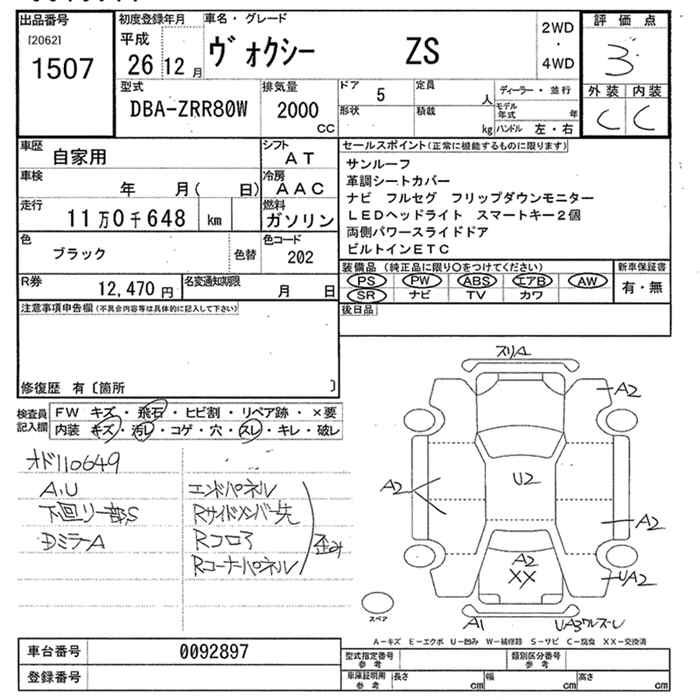 出品番号
[2062]
1507
初度登録年月
平成
26 12 月
車名・グレード
ヴォクシー ZS
2WD
・
4WD
評価点
3
外装 内装
C C
型式
DBA-ZRR80W
排気量
2000
CC
ドア
5
形状
定員
人
積載
kg
ディーラー・並行
モデル年式 年
ハンドル 左・右
車歴
自家用
シフト
AT
車検
年 月( 日)
冷房
AAC
走行
11万0千648 km
燃料
ガソリン
色
ブラック
色替
色コード
202
R券
12,470 円
名変通知期限
月 日
セールスポイント(正常に機能するものに限ります)
サンルーフ
革調シートカバー
ナビ フルセグ フリップダウンモニター
LEDヘッドライト スマートキー2個
両側パワースライドドア
ビルトインETC
装備品(純正品に限り○をつけてください)
新車保証書
PS PW ABS エアB AW
SR ナビ TV カワ
有・無
後日品
注意事項申告欄(不具合内容等は具体的に記入して下さい)
修復歴 有〔箇所 〕
検査員
記入欄
FW キズ・飛石・ヒビ割・リペア跡・×要
内装 キズ・汚レ・コゲ・穴・スレ・キレ・破レ
オド110649
A,U
下廻リ一部S
DミラーA
エンドパネル
Rサイドメンバー先
Rフロア
Rコーナーパネル
歪み
スリA
A2
A2
U2
A2
A2
XX
UA2
A1
UA3ワレズーレ
スペア
A-キズ E-エクボ U-凹み W-補修跡 S-サビ C-腐食 XX-交換済
車台番号
0092897
登録番号
型式指定番号
参考
類別区分番号
参考
車庫証明用
参考
長さ cm
幅 cm
高さ cm